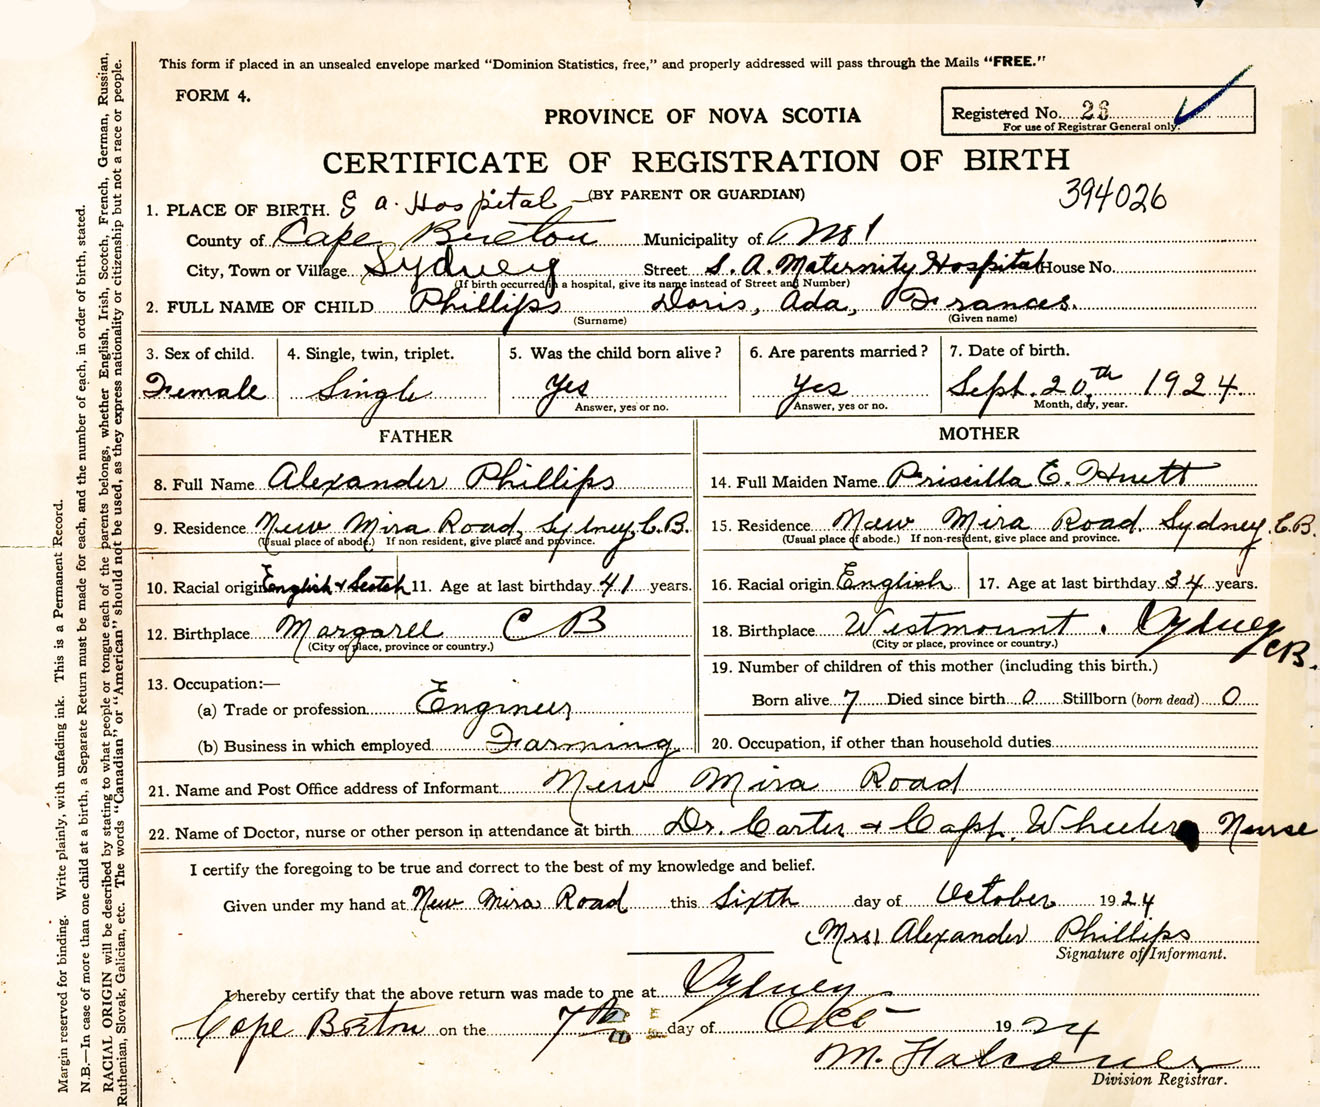 This form if placed in an unsealed envelope marked "Dominion Statistics, free," and properly addressed will pass through the Mails "FREE."
FORM 4.
PROVINCE OF NOVA SCOTIA
Registered No. 26
For use of Registrar General only.
CERTIFICATE OF REGISTRATION OF BIRTH
(BY PARENT OR GUARDIAN)
394026
1. PLACE OF BIRTH. S a. Hospital
County of Cape Breton Municipality of No 1
City, Town or Village Sydney Street S. A. Maternity Hospital House No.
(If birth occurred in a hospital, give its name instead of Street and Number)
2. FULL NAME OF CHILD Phillips Doris, Ada, Frances.
(Surname) (Given name)
3. Sex of child. 4. Single, twin, triplet. 5. Was the child born alive? 6. Are parents married? 7. Date of birth.
Female Single Yes Yes Sept. 20th, 1924.
Answer, yes or no. Answer, yes or no. Month, day, year.
FATHER
8. Full Name Alexander Phillips
9. Residence New Mira Road, Sydney, C.B.
(Usual place of abode.) If non resident, give place and province.
10. Racial origin English & Scotch 11. Age at last birthday 41 years.
12. Birthplace Margaree C B
(City or place, province or country.)
13. Occupation:—
(a) Trade or profession Engineer
(b) Business in which employed Farming
MOTHER
14. Full Maiden Name Priscilla E. Huett
15. Residence New Mira Road. Sydney. C.B.
(Usual place of abode.) If non-resident, give place and province.
16. Racial origin English 17. Age at last birthday 34 years.
18. Birthplace Westmount. Sydney CB.
(City or place, province or country.)
19. Number of children of this mother (including this birth.)
Born alive 7 Died since birth 0 Stillborn (born dead) 0
20. Occupation, if other than household duties
21. Name and Post Office address of Informant New Mira Road
22. Name of Doctor, nurse or other person in attendance at birth Dr. Carter & Capt. Wheeler Nurse
I certify the foregoing to be true and correct to the best of my knowledge and belief.
Given under my hand at New Mira Road this Sixth day of October 1924
(Mrs) Alexander Phillips
Signature of Informant.
I hereby certify that the above return was made to me at Sydney
Cape Breton on the 7th day of Oct 1924
M. Falconer
Division Registrar.
Margin reserved for binding. Write plainly, with unfading ink. This is a Permanent Record.
N.B.—In case of more than one child at a birth, a Separate Return must be made for each, and the number of each, in order of birth, stated.
RACIAL ORIGIN will be described by stating to what people or tongue each of the parents belongs, whether English, Irish, Scotch, French, German, Russian,
Ruthenian, Slovak, Galician, etc. The words "Canadian" or "American" should not be used, as they express nationality or citizenship but not a race or people.